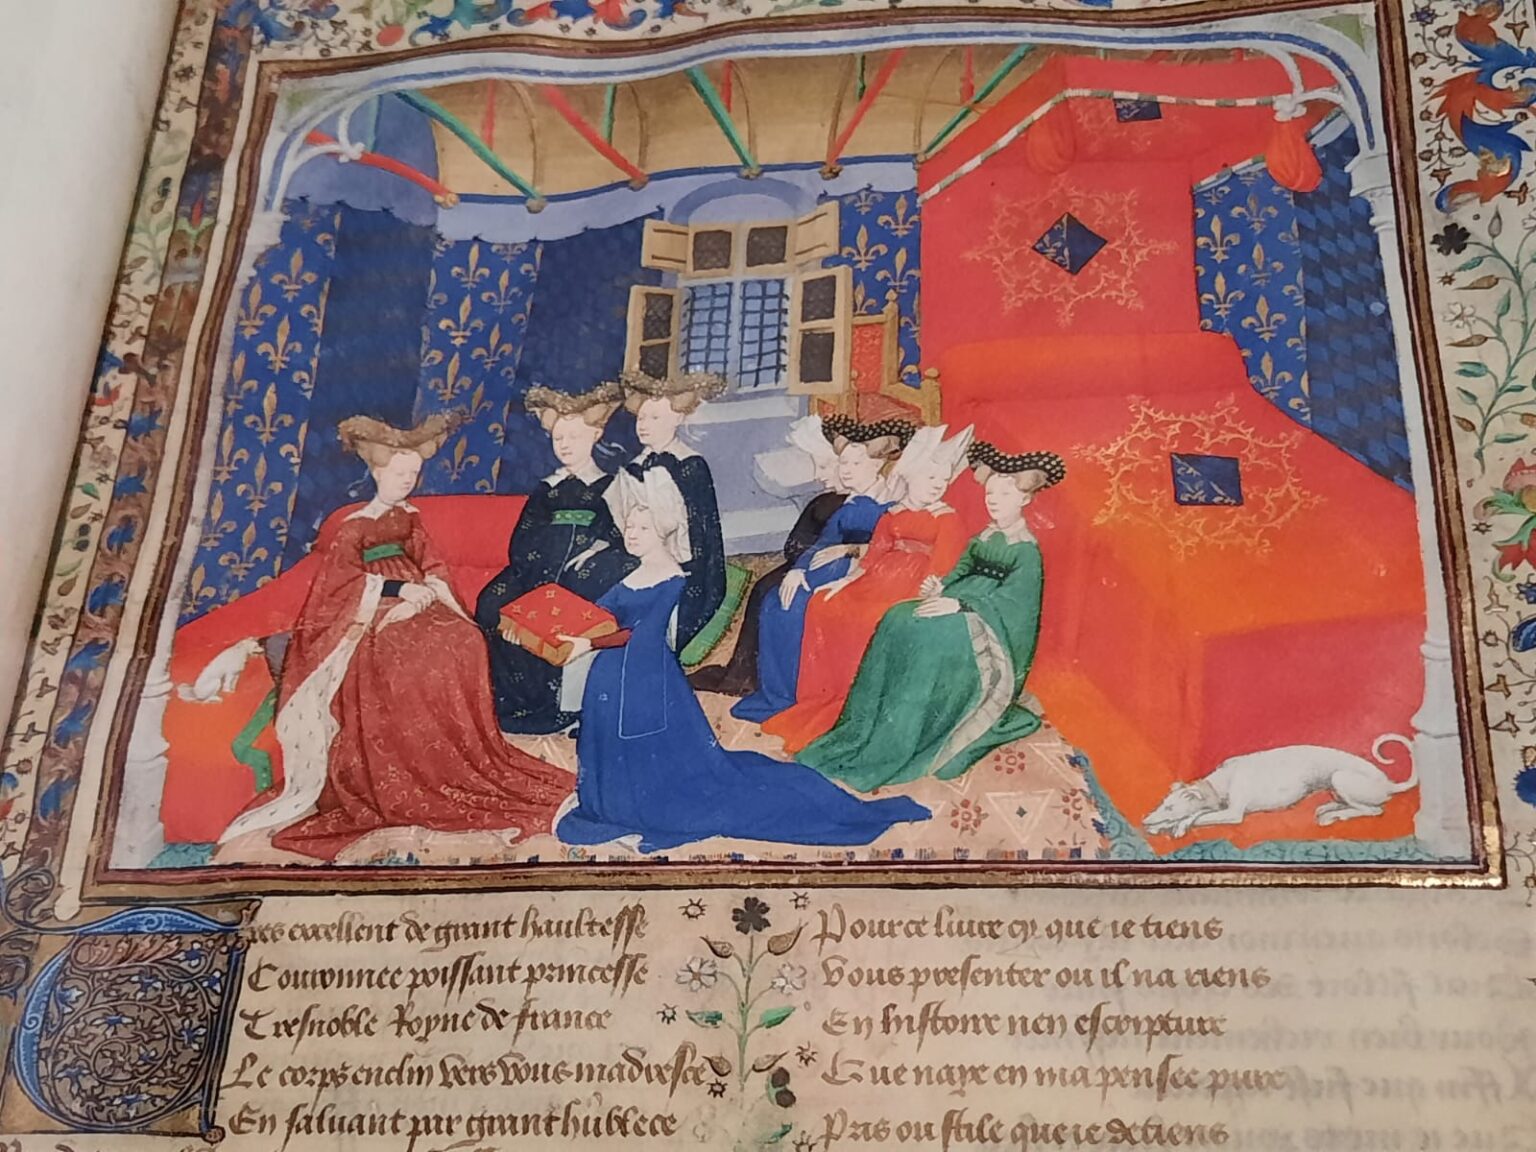 Tres excellent de grant haultesse
Couronnee poissant princesse
Tresnoble Royne de france
Le corps enclin vers vous madresce
En saluant par grant humblece
Pource liure cy que ie tiens
Vous presenter ou il na riens
En histoire nen escripture
Que naye en ma pensee pure
Pris ou stile que ie detiens